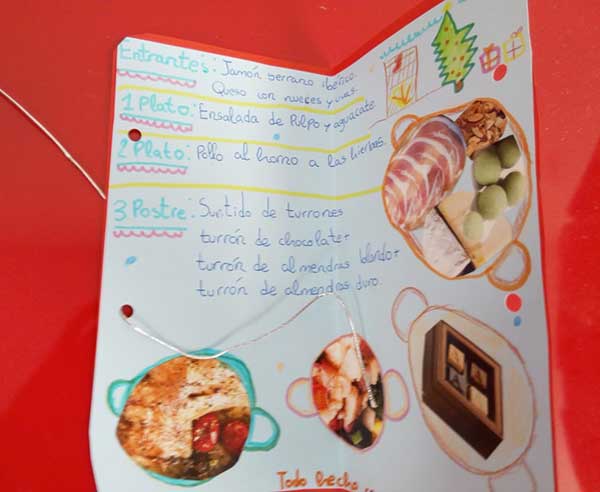 Entrantes: Jamón serrano ibérico.
Queso con nueces y uvas.
1 Plato: Ensalada de Pulpo y aguacate.
2 Plato: Pollo al horno a las hierbas.
3 Postre: Surtido de turrones
turrón de chocolate+
turrón de almendras blando+
turrón de almendras duro.
Todo hecho ..